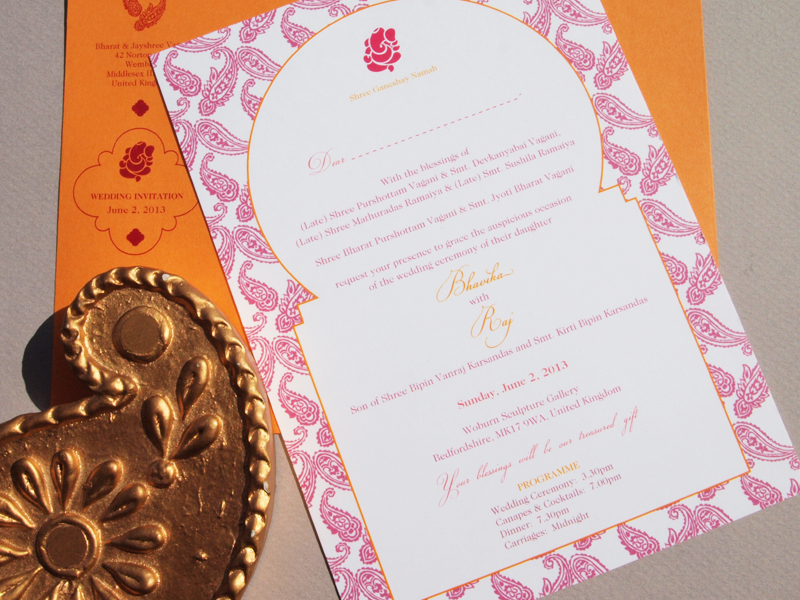 Bharat & Jayshree
42 Norton
Middlesex
United
WEDDING INVITATION
June 2, 2013
Shree Ganeshay Namah
Dear
With the blessings of
(Late) Shree Purshottam Vagani & Smt. Devkanyabai Vagani,
(Late) Shree Mathuradas Ramaiya & (Late) Smt. Sushila Ramaiya
Shree Bharat Purshottam Vagani & Smt. Jyoti Bharat Vagani
request your presence to grace the auspicious occasion
of the wedding ceremony of their daughter
Bhavika
with
Raj
Son of Shree Bipin Vanraj Karsandas and Smt. Kirti Bipin Karsandas
Sunday, June 2, 2013
Woburn Sculpture Gallery
Bedfordshire, MK17 9WA, United Kingdom
Your blessings will be our treasured gift
PROGRAMME
Wedding Ceremony: 3.30pm
Canapes & Cocktails: 7.00pm
Dinner: 7.30pm
Carriages: Midnight